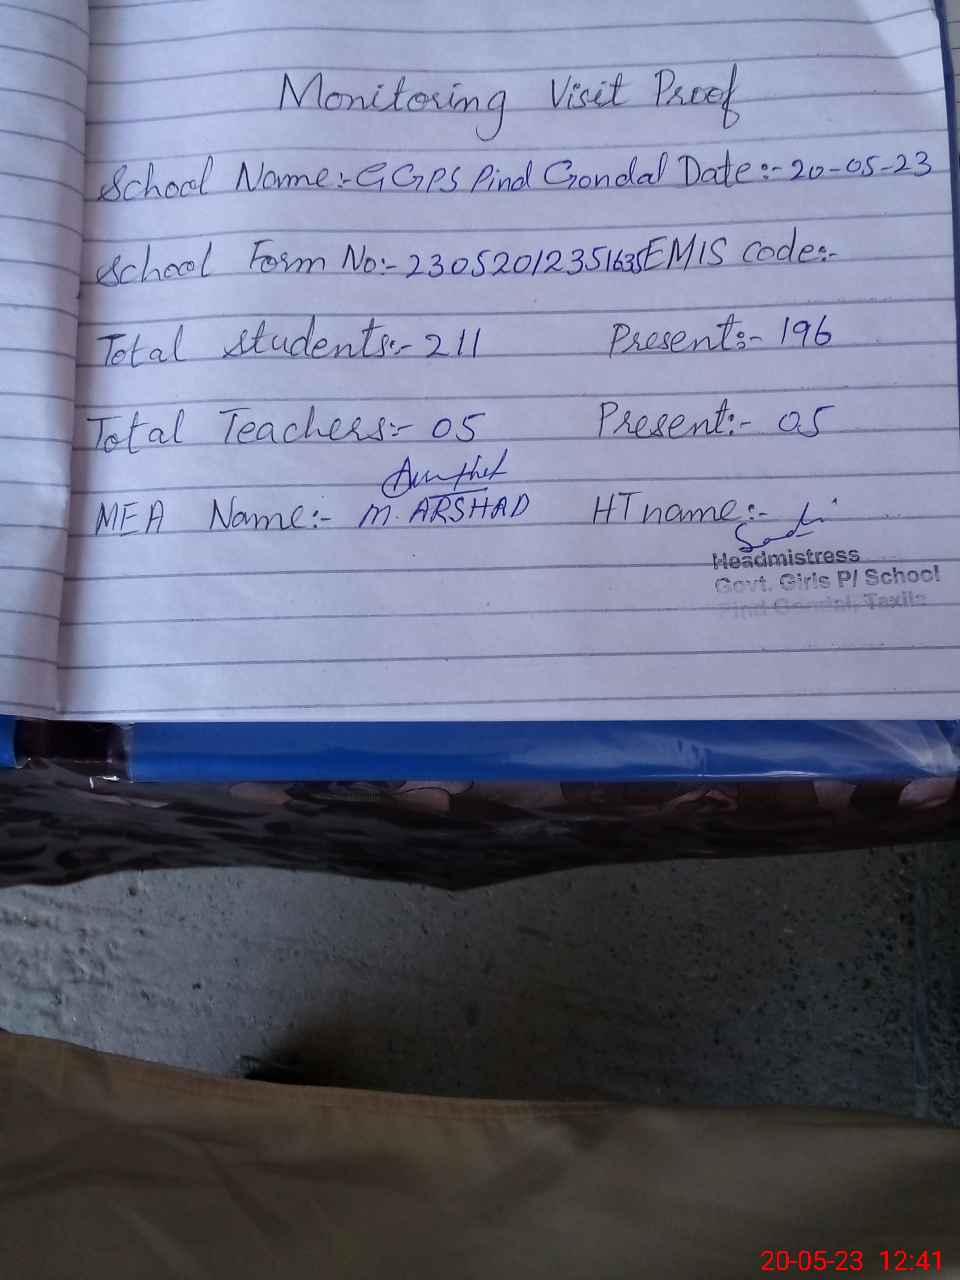 Monitoring Visit Proof
School Name:- GGPS Pind Gondal Date:- 20-05-23
School Form No:- 23052012351635 EMIS code:-
Total students:- 211 Present:- 196
Total Teachers:- 05 Present:- 05
MEA Name:- M. ARSHAD HT name:-
Headmistress
Govt. Girls P/ School
Pind Gondal, Taxila
20-05-23 12:41